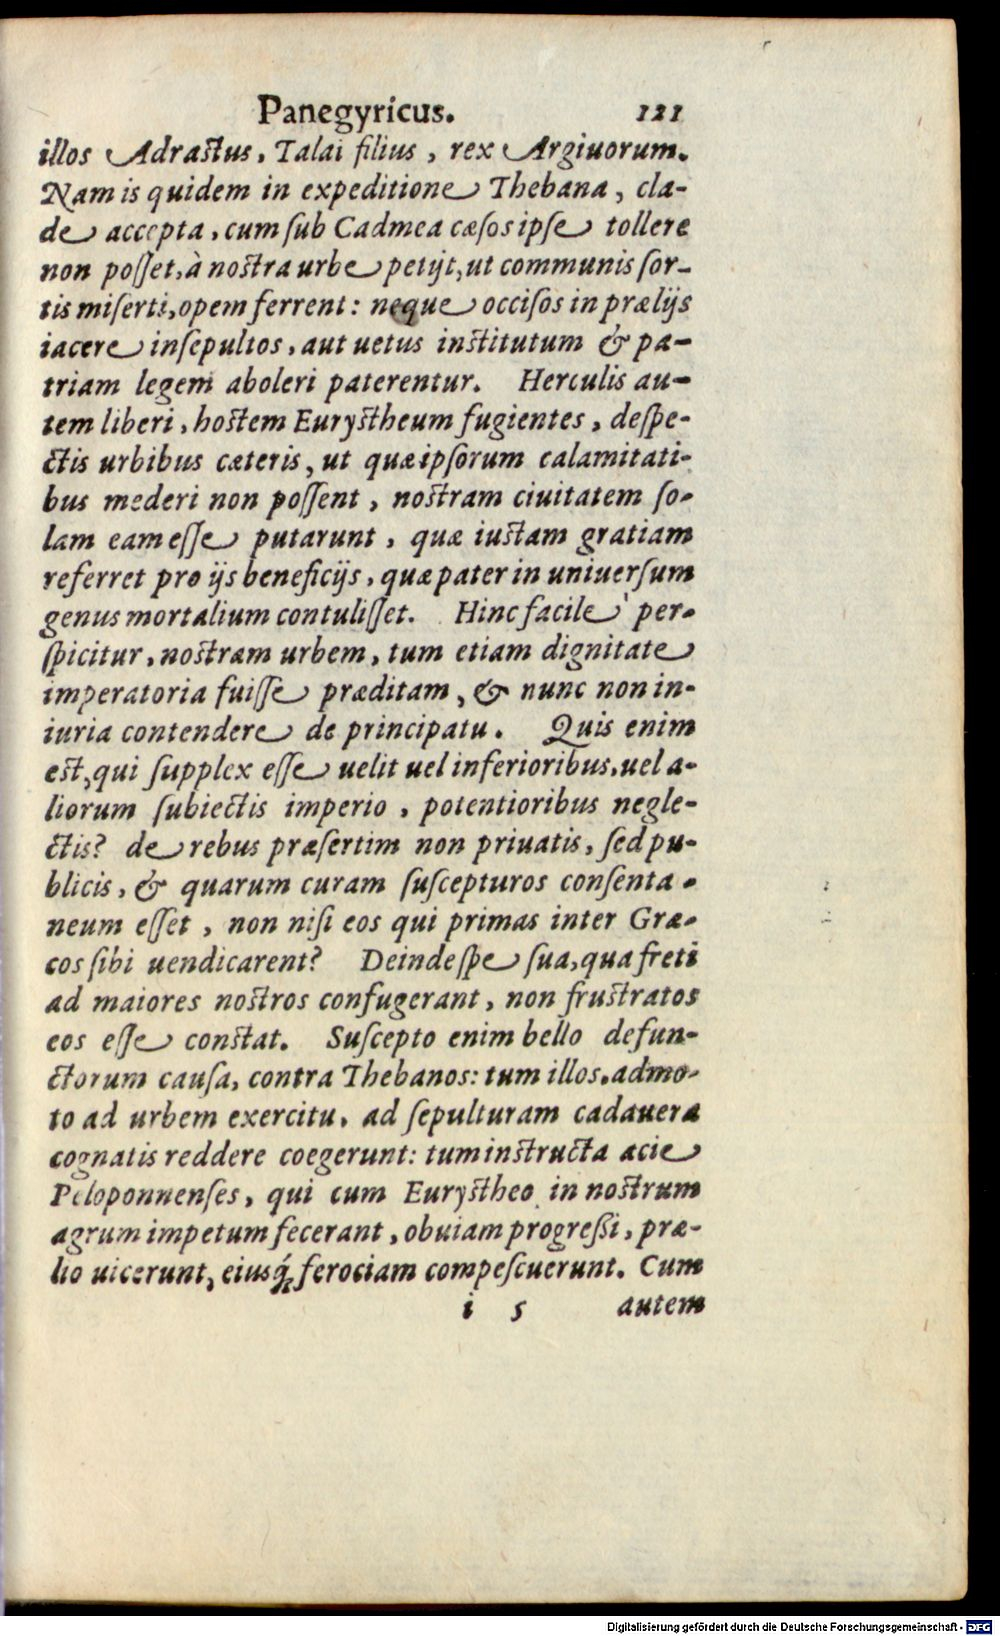 Panegyricus. 121
illos Adrastus, Talai filius, rex Argiuorum.
Nam is quidem in expeditione Thebana, cla-
de accepta, cum ſub Cadmea cæſos ipſe tollere
non poſſet, à nostra urbe petijt, ut communis ſor-
tis miſerti, opem ferrent: neque occiſos in prælijs
iacere inſepultos, aut uetus institutum & pa-
triam legem aboleri paterentur. Herculis au-
tem liberi, hostem Eurystheum fugientes, deſpe-
ctis urbibus cæteris, ut quæ ipſorum calamitati-
bus mederi non poſſent, nostram ciuitatem ſo-
lam eam eſſe putarunt, quæ iustam gratiam
referret pro ijs beneficijs, quæ pater in uniuerſum
genus mortalium contuliſſet. Hinc facile per-
ſpicitur, nostram urbem, tum etiam dignitate
imperatoria fuiſſe præditam, & nunc non in-
iuria contendere de principatu. Quis enim
est, qui ſupplex eſſe uelit uel inferioribus, uel a-
liorum ſubiectis imperio, potentioribus negle-
ctis? de rebus præſertim non priuatis, ſed pu-
blicis, & quarum curam ſuſcepturos conſenta-
neum eſſet, non niſi eos qui primas inter Græ-
cos ſibi uendicarent? Deinde ſpe ſua, qua freti
ad maiores nostros confugerant, non frustratos
eos eſſe constat. Suſcepto enim bello defun-
ctorum cauſa, contra Thebanos: tum illos, admo-
to ad urbem exercitu, ad ſepulturam cadauera
cognatis reddere coegerunt: tum instructa acie
Peloponnenſes, qui cum Eurystheo in nostrum
agrum impetum fecerant, obuiam progreſſi, præ-
lio uicerunt, eiusq́; ferociam compeſcuerunt. Cum
i 5 autem
Digitalisierung gefördert durch die Deutsche Forschungsgemeinschaft - DFG